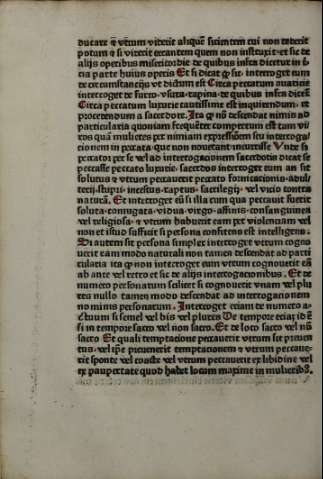 ducere ⁊ vtrum viderit aliquē sitientem cui non dederit
potum ⁊ si viderit errantem quem non instruxit ⁊ sic de
alijs operibus misericordie de quibus infra dicetur in t̄
cia parte huius operis Et si dicat ꝙ sic. interroget eum
de circumstancijs vt dictum est Circa peccatum auaricie
interroget de furto. vsura. rapina. de quibus infra dicet̄
Circa peccatum luxurie cautissime est inquirendum. et
procedendum a sacerdote. Ita ꝙ nō descendat nimis ad
particularia quoniam frequēter compertum est tam vi
ros quā mulieres per nimiam expressionem seu interroga
cionem in peccata. que non nouerant incurrisse Vnde si
peccator per se vel ad interrogacionem sacerdotis dicat se
peccasse peccato luxurie. sacerdos interroget eum an sit
solutus ⁊ vtrum peccauerit peccato fornicacionis. adul
terij. stupri. incestus. raptus. sacrilegij. vel vicio contra
naturā. Et interroget eū si illa cum qua peccauit fuerit
soluta. coniugata. vidua. virgo. affinis. consanguinea
vel religiosa. ⁊ vtrum habuerit eam per violenciam vel
non et istud sufficit si persona confitens est intelligens.
Si autem sit persona simplex interroget vtrum cogno
uerit eam modo naturali non tamen descendat ad parti
cularia ita ꝙ non interroget eum vtrum cognouerit eā
ab ante vel retro et sic de alijs interrogacionibus. Et de
numero personarum scilicet si cognouerit vnam vel plu
res nullo tamen modo descendat ad interrogacionem
nominis personarum. Interroget eciam de numero a
ctuum si semel vel bis vel plures De tempore eciaȝ id ē
si in tempore sacro vel non sacro. Et de loco sacro vel nō
sacro Et quali temptacione peccauerit vtrum sit preuen
tus. vel ip̄e preuenerit temptacionem ⁊ vtrum peccaue
rit sponte vel coacte vel vtrum peccauerit ex libidine vel
ex paupertate quod habet locum maxime in mulieribꝰ.